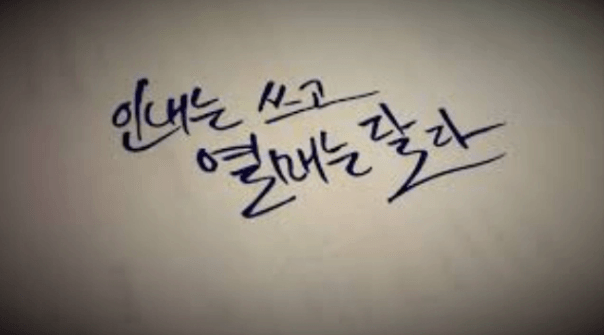 인내는 쓰고
열매는 달다